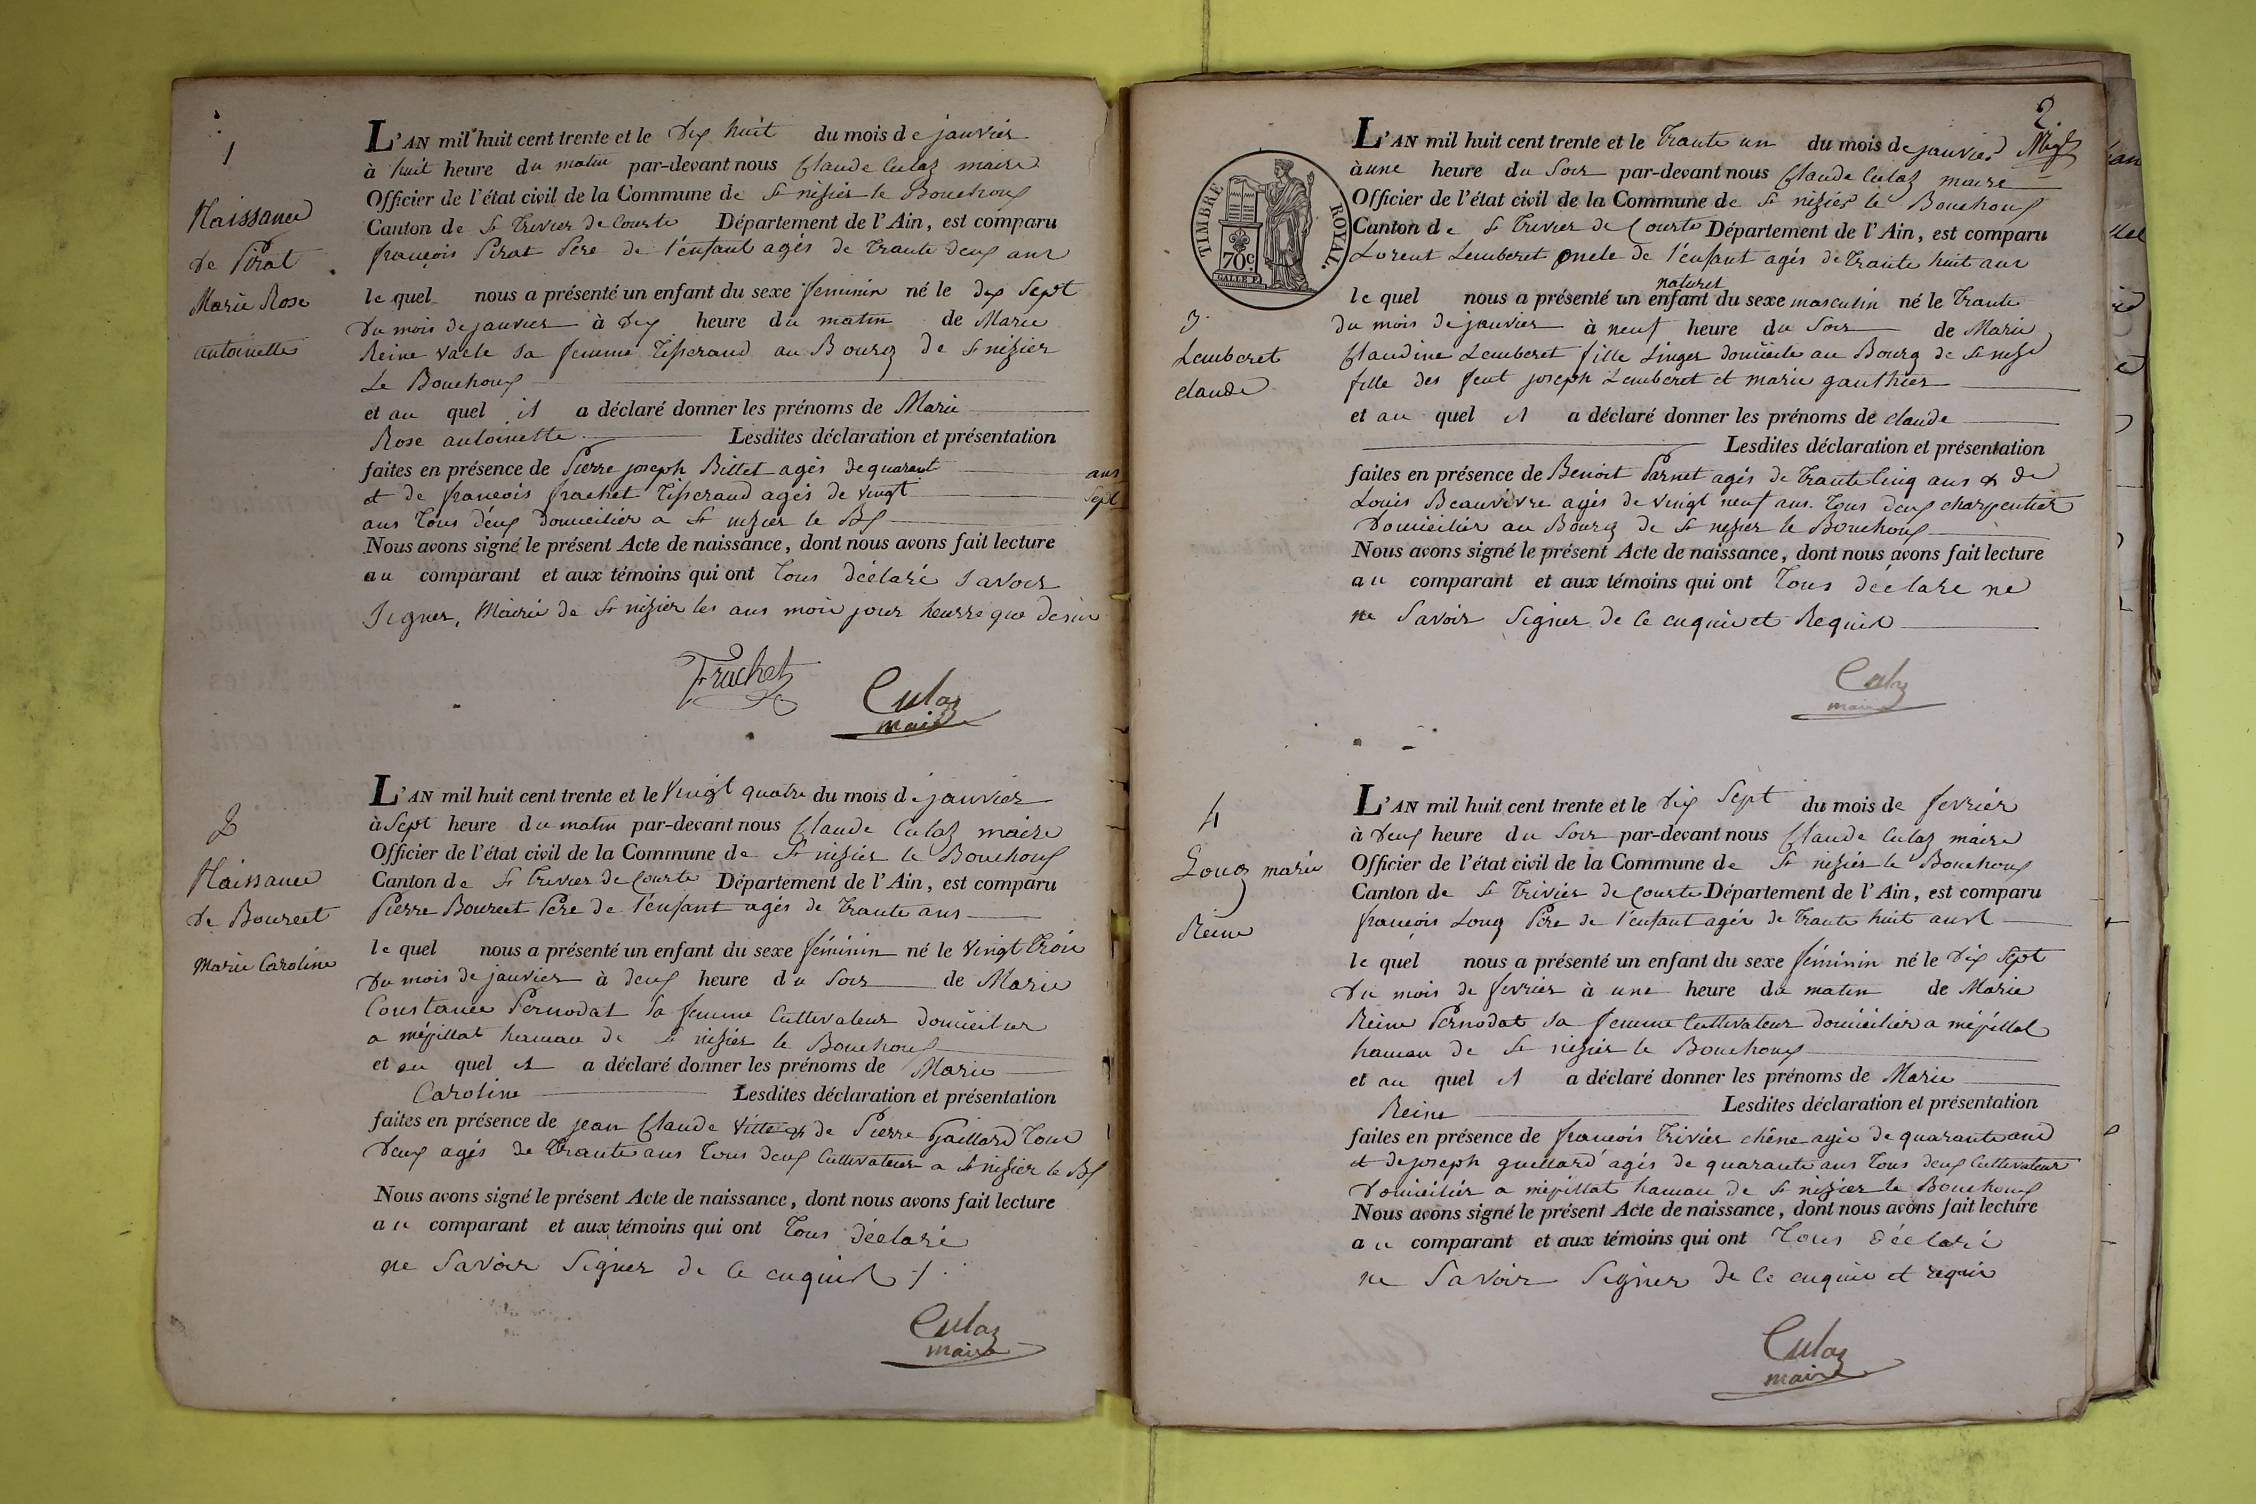 1
Naissance
de Pirat
Marie Rose
antoinette
L'AN mil huit cent trente et le dix huit du mois de janvier
à huit heure du matin par-devant nous Claude Culaz maire
Officier de l'état civil de la Commune de St nizier le Bouchoux
Canton de St Trivier de Courte Département de l'Ain, est comparu
françois Pirat Père de l'enfant agés de trante deux ans
le quel nous a présenté un enfant du sexe feminin né le dix sept
du mois de janvier à dix heure du matin de Marie
Reine vacle sa femme Tisserand au Bourg de St nizier
Le Bouchoux
et au quel il a déclaré donner les prénoms de Marie
Rose antoinette Lesdites déclaration et présentation
faites en présence de Pierre joseph Billet agés de quarant ans
et de françois frachet Tisserand agés de vingt sept
ans Tous deux domicilier a St nizier le Bx
Nous avons signé le présent Acte de naissance, dont nous avons fait lecture
au comparant et aux témoins qui ont Tous déclaré savoir
Signer, Mairie de St nizier les ans mois jour heurre que desus
Frachet
Culaz
maire
2
Naissance
de Bourcet
Marie Caroline
L'AN mil huit cent trente et le vingt quatre du mois de janvier
à Sept heure du matin par-devant nous Claude Culaz maire
Officier de l'état civil de la Commune de St nizier le Bouchoux
Canton de St Trivier de Courte Département de l'Ain, est comparu
Pierre Bourcet Père de l'enfant agés de trante ans
le quel nous a présenté un enfant du sexe féminin né le vingt trois
du mois de janvier à deux heure du soir de Marie
Constance Pernodat sa femme Cultivateur domicilier
a mépillat hameau de St nizier le Bouchoux
et au quel il a déclaré donner les prénoms de Marie
Caroline Lesdites déclaration et présentation
faites en présence de jean Claude vitte & de Pierre Gaillard Tous
Deux agés de Trante ans Tous deux Cultivateur a St nizier le Bx
Nous avons signé le présent Acte de naissance, dont nous avons fait lecture
au comparant et aux témoins qui ont Tous déclaré
ne Savoir Signer de ce enquis
Culaz
maire
2
TIMBRE ROYAL.
70c
3
Lemberet
claude
L'AN mil huit cent trente et le Trante un du mois de janvier
à une heure du Soir par-devant nous Claude Culaz maire
Officier de l'état civil de la Commune de St nizier le Bouchoux
Canton de St Trivier de Courte Département de l'Ain, est comparu
Lorent Lemberet oncle de l'enfant agés de Trante huit ans
naturel
le quel nous a présenté un enfant du sexe masculin né le Trante
du mois de janvier à neuf heure du Soir de Marie
Claudine Lemberet fille Linger domicile au Bourg de St nizier
fille des feut joseph Lemberet et marie gauthier
et au quel il a déclaré donner les prénoms de claude
Lesdites déclaration et présentation
faites en présence de Benoit Parnet agés de Trante Cinq ans & de
Louis Beauvivre agés de vingt neuf ans. Tous deux charpentier
Domicilier au Bourg de St nizier le Bouchoux
Nous avons signé le présent Acte de naissance, dont nous avons fait lecture
au comparant et aux témoins qui ont Tous déclare ne
ne Savoir Signer de ce enquis et Requis
Culaz
maire
4
Louq marie
Reine
L'AN mil huit cent trente et le dix Sept du mois de fevrier
à deux heure du Soir par-devant nous Claude Culaz maire
Officier de l'état civil de la Commune de St nizier le Bouchoux
Canton de St Trivier de Courte Département de l'Ain, est comparu
françois Louq Père de l'enfant agés de trante huit ans
le quel nous a présenté un enfant du sexe féminin né le dix Sept
du mois de fevrier à une heure du matin de Marie
Reine Pernodat sa femme Cultivateur domicilier a mépillat
hameau de St nizier le Bouchoux
et au quel il a déclaré donner les prénoms de Marie
Reine Lesdites déclaration et présentation
faites en présence de françois Trivier chêne agés de quarante ans
et de joseph guillard agés de quarante ans Tous deux Cultivateur
Domicilier a mépillat hameau de St nizier le Bouchoux
Nous avons signé le présent Acte de naissance, dont nous avons fait lecture
au comparant et aux témoins qui ont Tous déclaré
ne Savoir Signer de ce enquis et requis
Culaz
maire